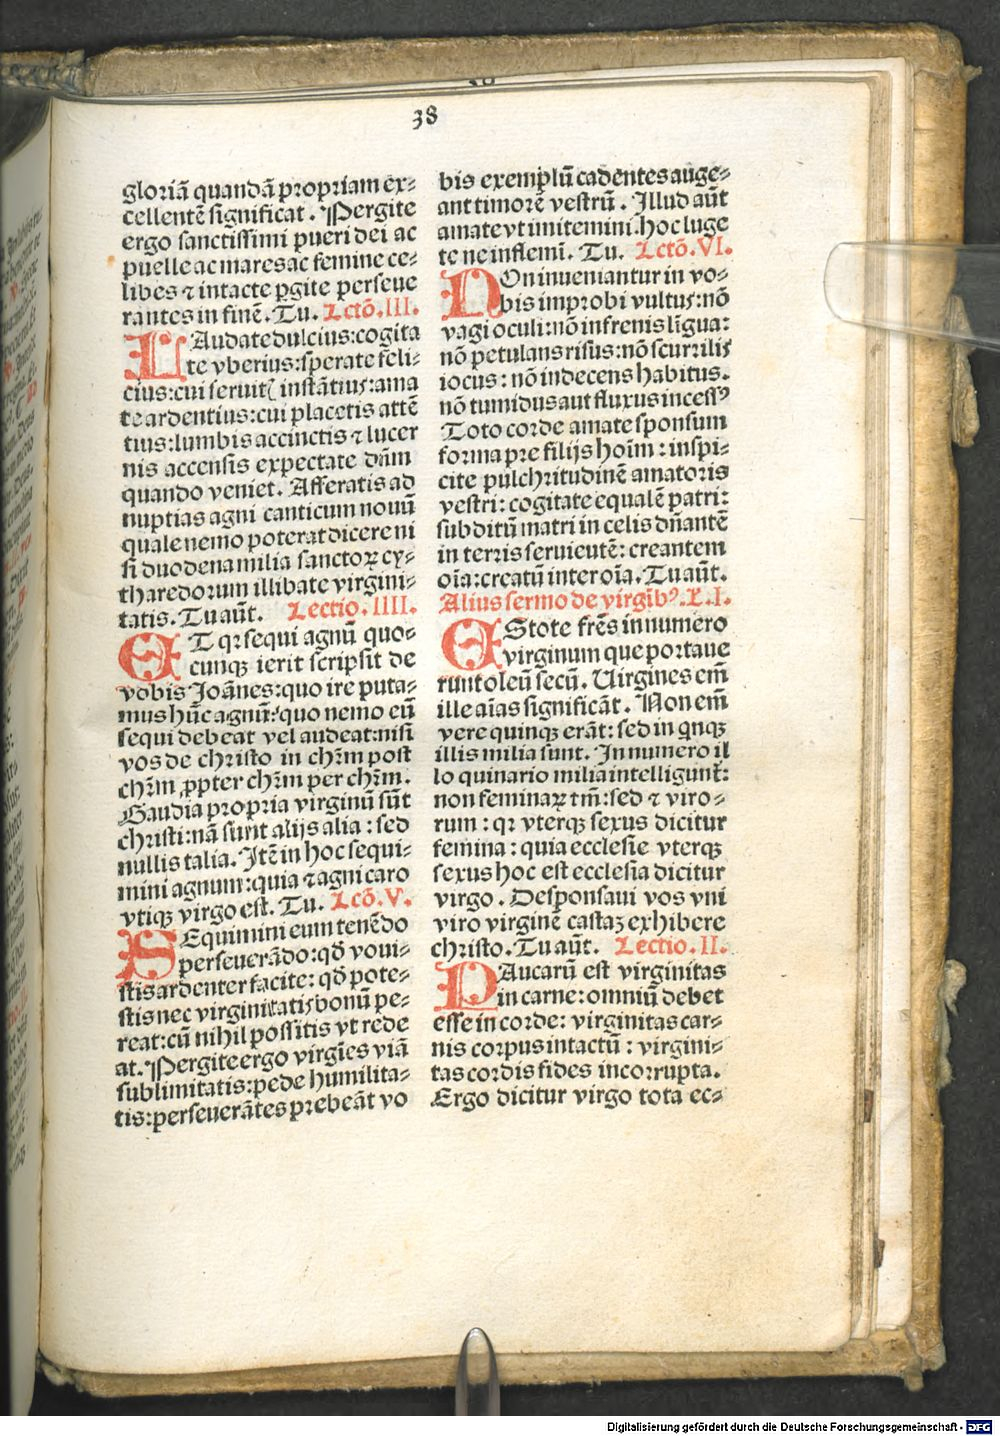 38
gloriā quandā propriam ex-
cellentē significat. Pergite
ergo sanctissimi pueri dei ac
puelle ac mares ac femine ce-
libes ⁊ intacte ꝑgite perseue
rantes in finē. Tu. Lctō. III.
LAudate dulcius: cogita
te vberius: sperate feli-
cius: cui seruitꝭ instātius: ama
te ardentius: cui placetis attē
tius: lumbis accinctis ⁊ lucer
nis accensis expectate dn̄m
quando veniet. Afferatis ad
nuptias agni canticum nouū
quale nemo poterat dicere ni
si duodena milia sanctoꝝ cy-
tharedorum illibate virgini-
tatis. Tu aūt. Lectio. IIII.
ET qꝛ sequi agnū quo-
cunqꝫ ierit scripsit de
vobis Joānes: quo ire puta-
mus hūc agnū: quo nemo eū
sequi debeat vel audeat: nisi
vos de christo in chr̄m post
chr̄m ꝓpter chr̄m per chr̄m.
Gaudia propria virginū sūt
christi: nā sunt alijs alia: sed
nullis talia. Jtē in hoc sequi-
mini agnum: quia ⁊ agni caro
vtiqꝫ virgo est. Tu. Lcō. V.
SEquimini eum tenēdo
perseuerādo: qd̄ voui-
stis ardenter facite: qd̄ pote-
stis nec virginitatis bonū pe-
reat: cū nihil possitis vt rede
at. Pergite ergo virgīes viā
sublimitatis: pede humilita-
tis: perseuerātes prebeāt vo
bis exemplū cadentes auge-
ant timorē vestrū. Jllud aūt
amate vt imitemini: hoc luge
te ne inflemī. Tu. Lctō. VI.
NOn inueniantur in vo-
bis improbi vultus: nō
vagi oculi: nō infrenis līgua:
nō petulans risus: nō scurrilis
iocus: nō indecens habitus.
nō tumidus aut fluxus incessꝰ
Toto corde amate sponsum
forma pre filijs hoīm: inspi-
cite pulchritudinē amatoris
vestri: cogitate equalē patri:
subditū matri in celis dn̄antē
in terris seruientē: creantem
oīa: creatū inter oīa. Tu aūt.
Alius sermo de virgībꝰ. L. I.
EStote frēs in numero
virginum que portaue
runt oleū secū. Virgines em̄
ille aīas significāt. Non em̄
vere quinqꝫ erāt: sed in qnqꝫ
illis milia sunt. Jn numero il
lo quinario milia intelligunt̄:
non feminaꝝ tm̄: sed ⁊ viro-
rum: qꝛ vterqꝫ sexus dicitur
femina: quia ecclesie vterqꝫ
sexus hoc est ecclesia dicitur
virgo. Desponsaui vos vni
viro virginē castaꝫ exhibere
christo. Tu aūt. Lectio. II.
PAucarū est virginitas
in carne: omniū debet
esse in corde: virginitas car-
nis corpus intactū: virgini-
tas cordis fides incorrupta.
Ergo dicitur virgo tota ec-
Digitalisierung gefördert durch die Deutsche Forschungsgemeinschaft - DFG